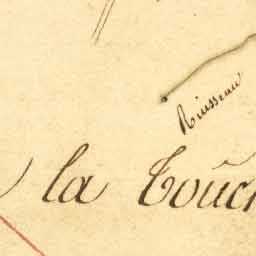 Ruisseau
la Touc